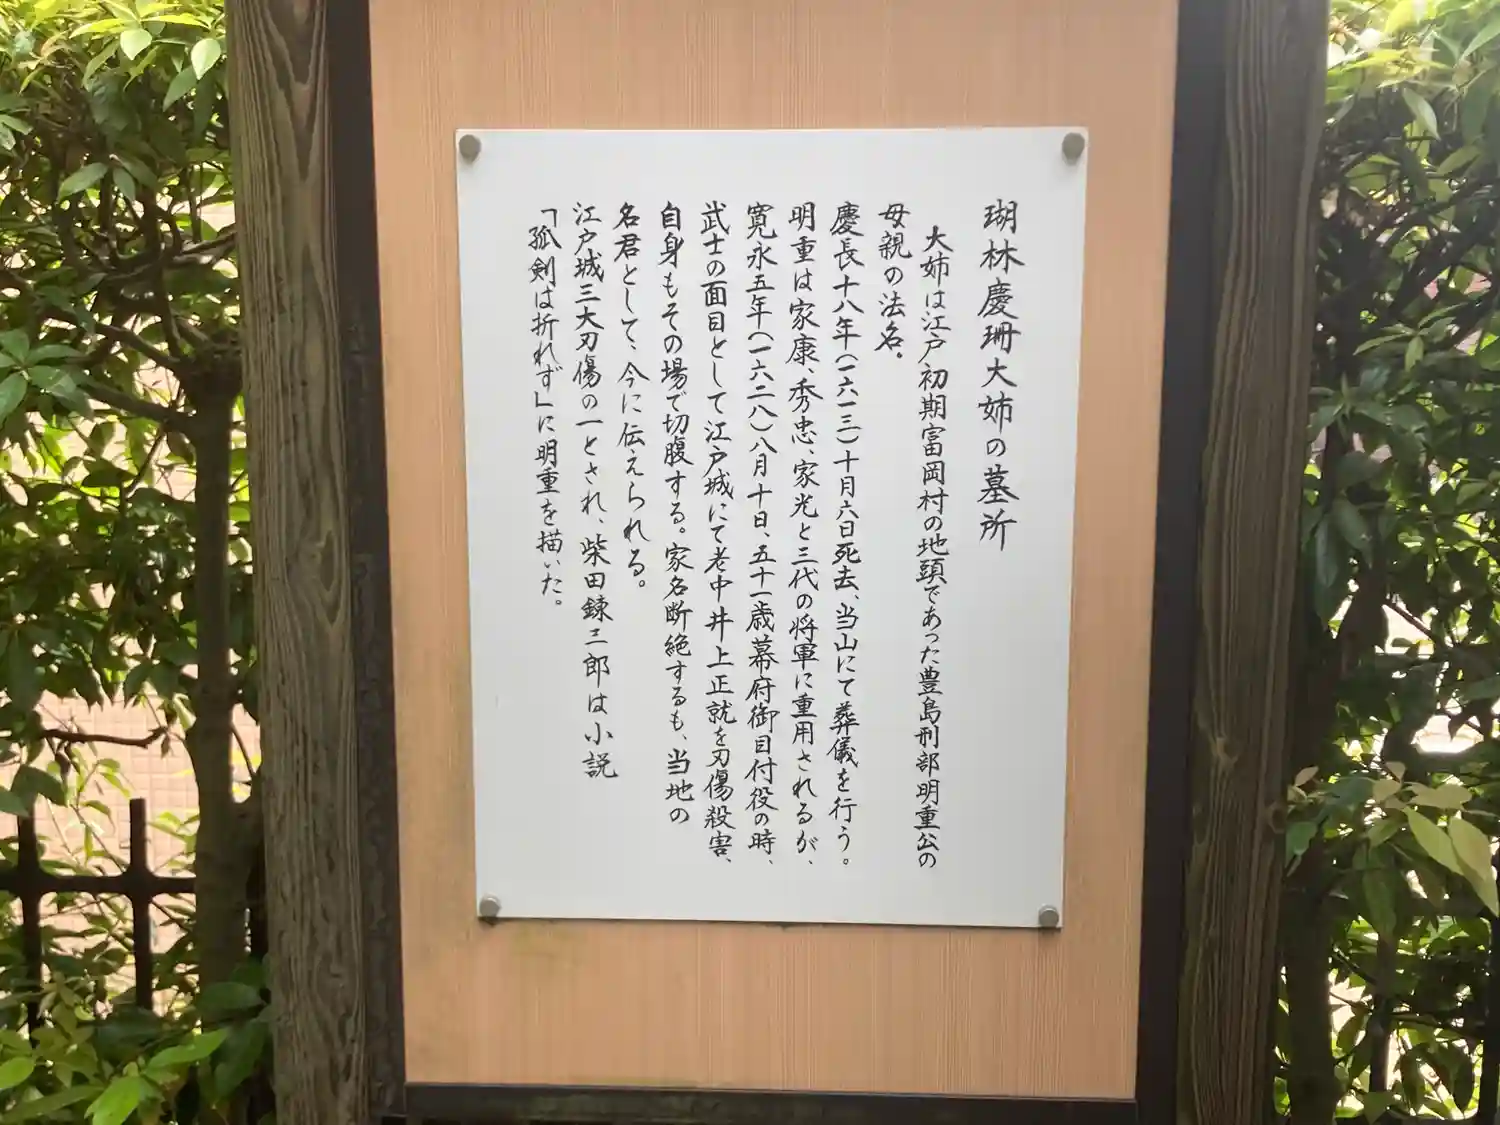 瑚林慶珊大姉の墓所
大姉は江戸初期富岡村の地頭であった豊島刑部明重公の
母親の法名。
慶長十八年(一六一三)十月六日死去、当山にて葬儀を行う。
明重は家康、秀忠、家光と三代の将軍に重用されるが、
寛永五年(一六二八)八月十日、五十一歳幕府御目付役の時、
武士の面目として江戸城にて老中井上正就を刃傷殺害、
自身もその場で切腹する。家名断絶するも、当地の
名君として、今に伝えられる。
江戸城三大刃傷の一とされ、柴田錬三郎は小説
「孤剣は折れず」に明重を描いた。